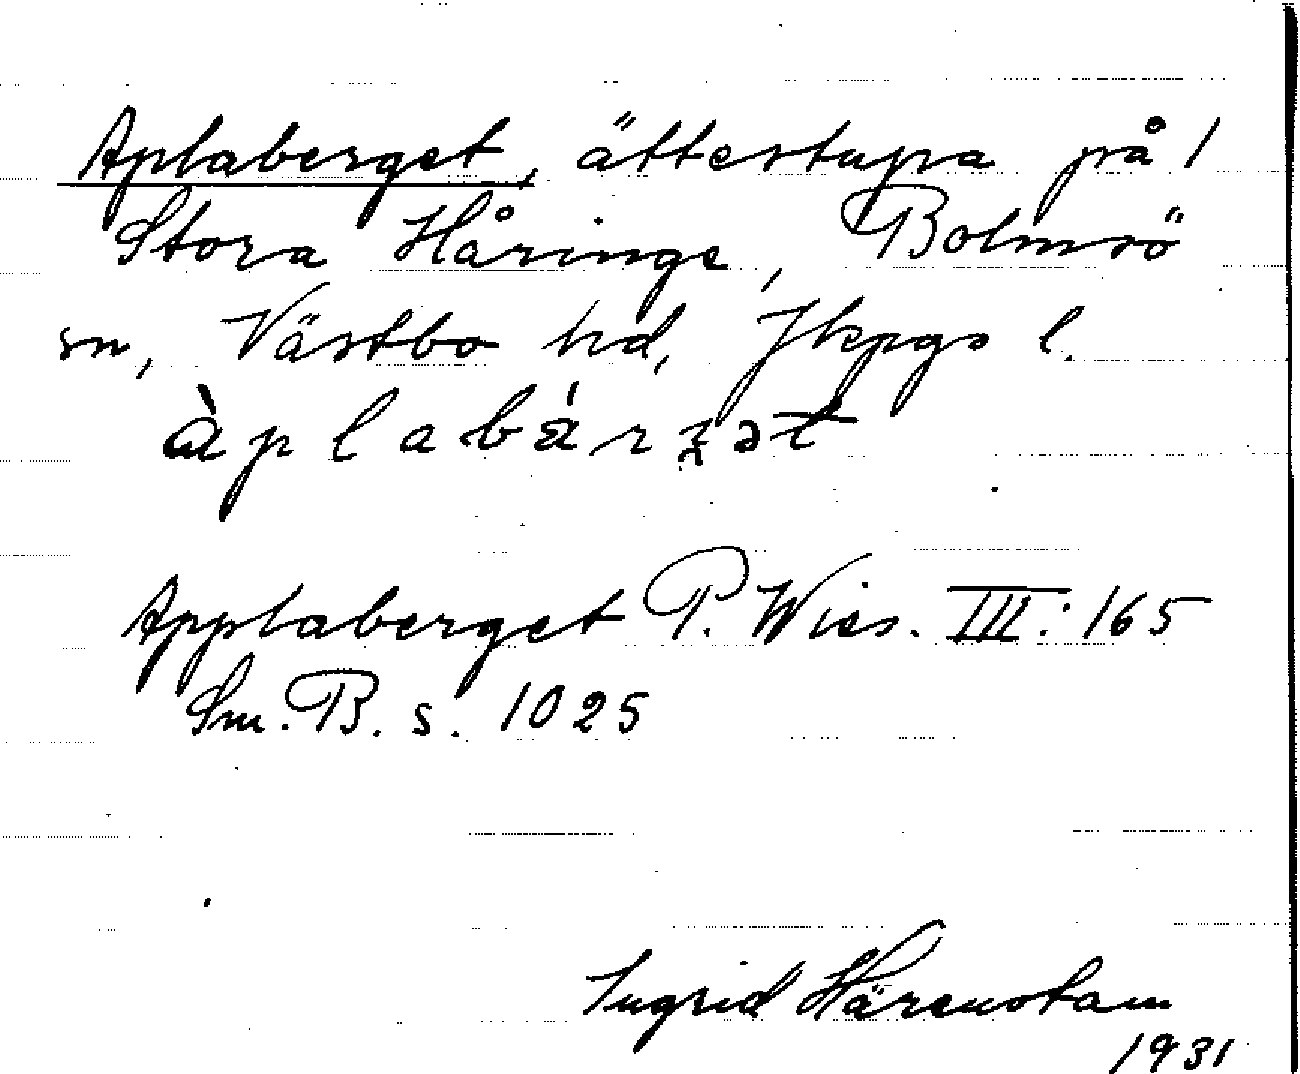 Aplaberget, ättestupa på /
Stora Håringe, Bolmsö
sn, Västbo hd, Jkpgs l.
àplabárʒət
Applaberget P. Wies. III: 165
Sm. B. s. 1025
Ingrid Härenstam
1931